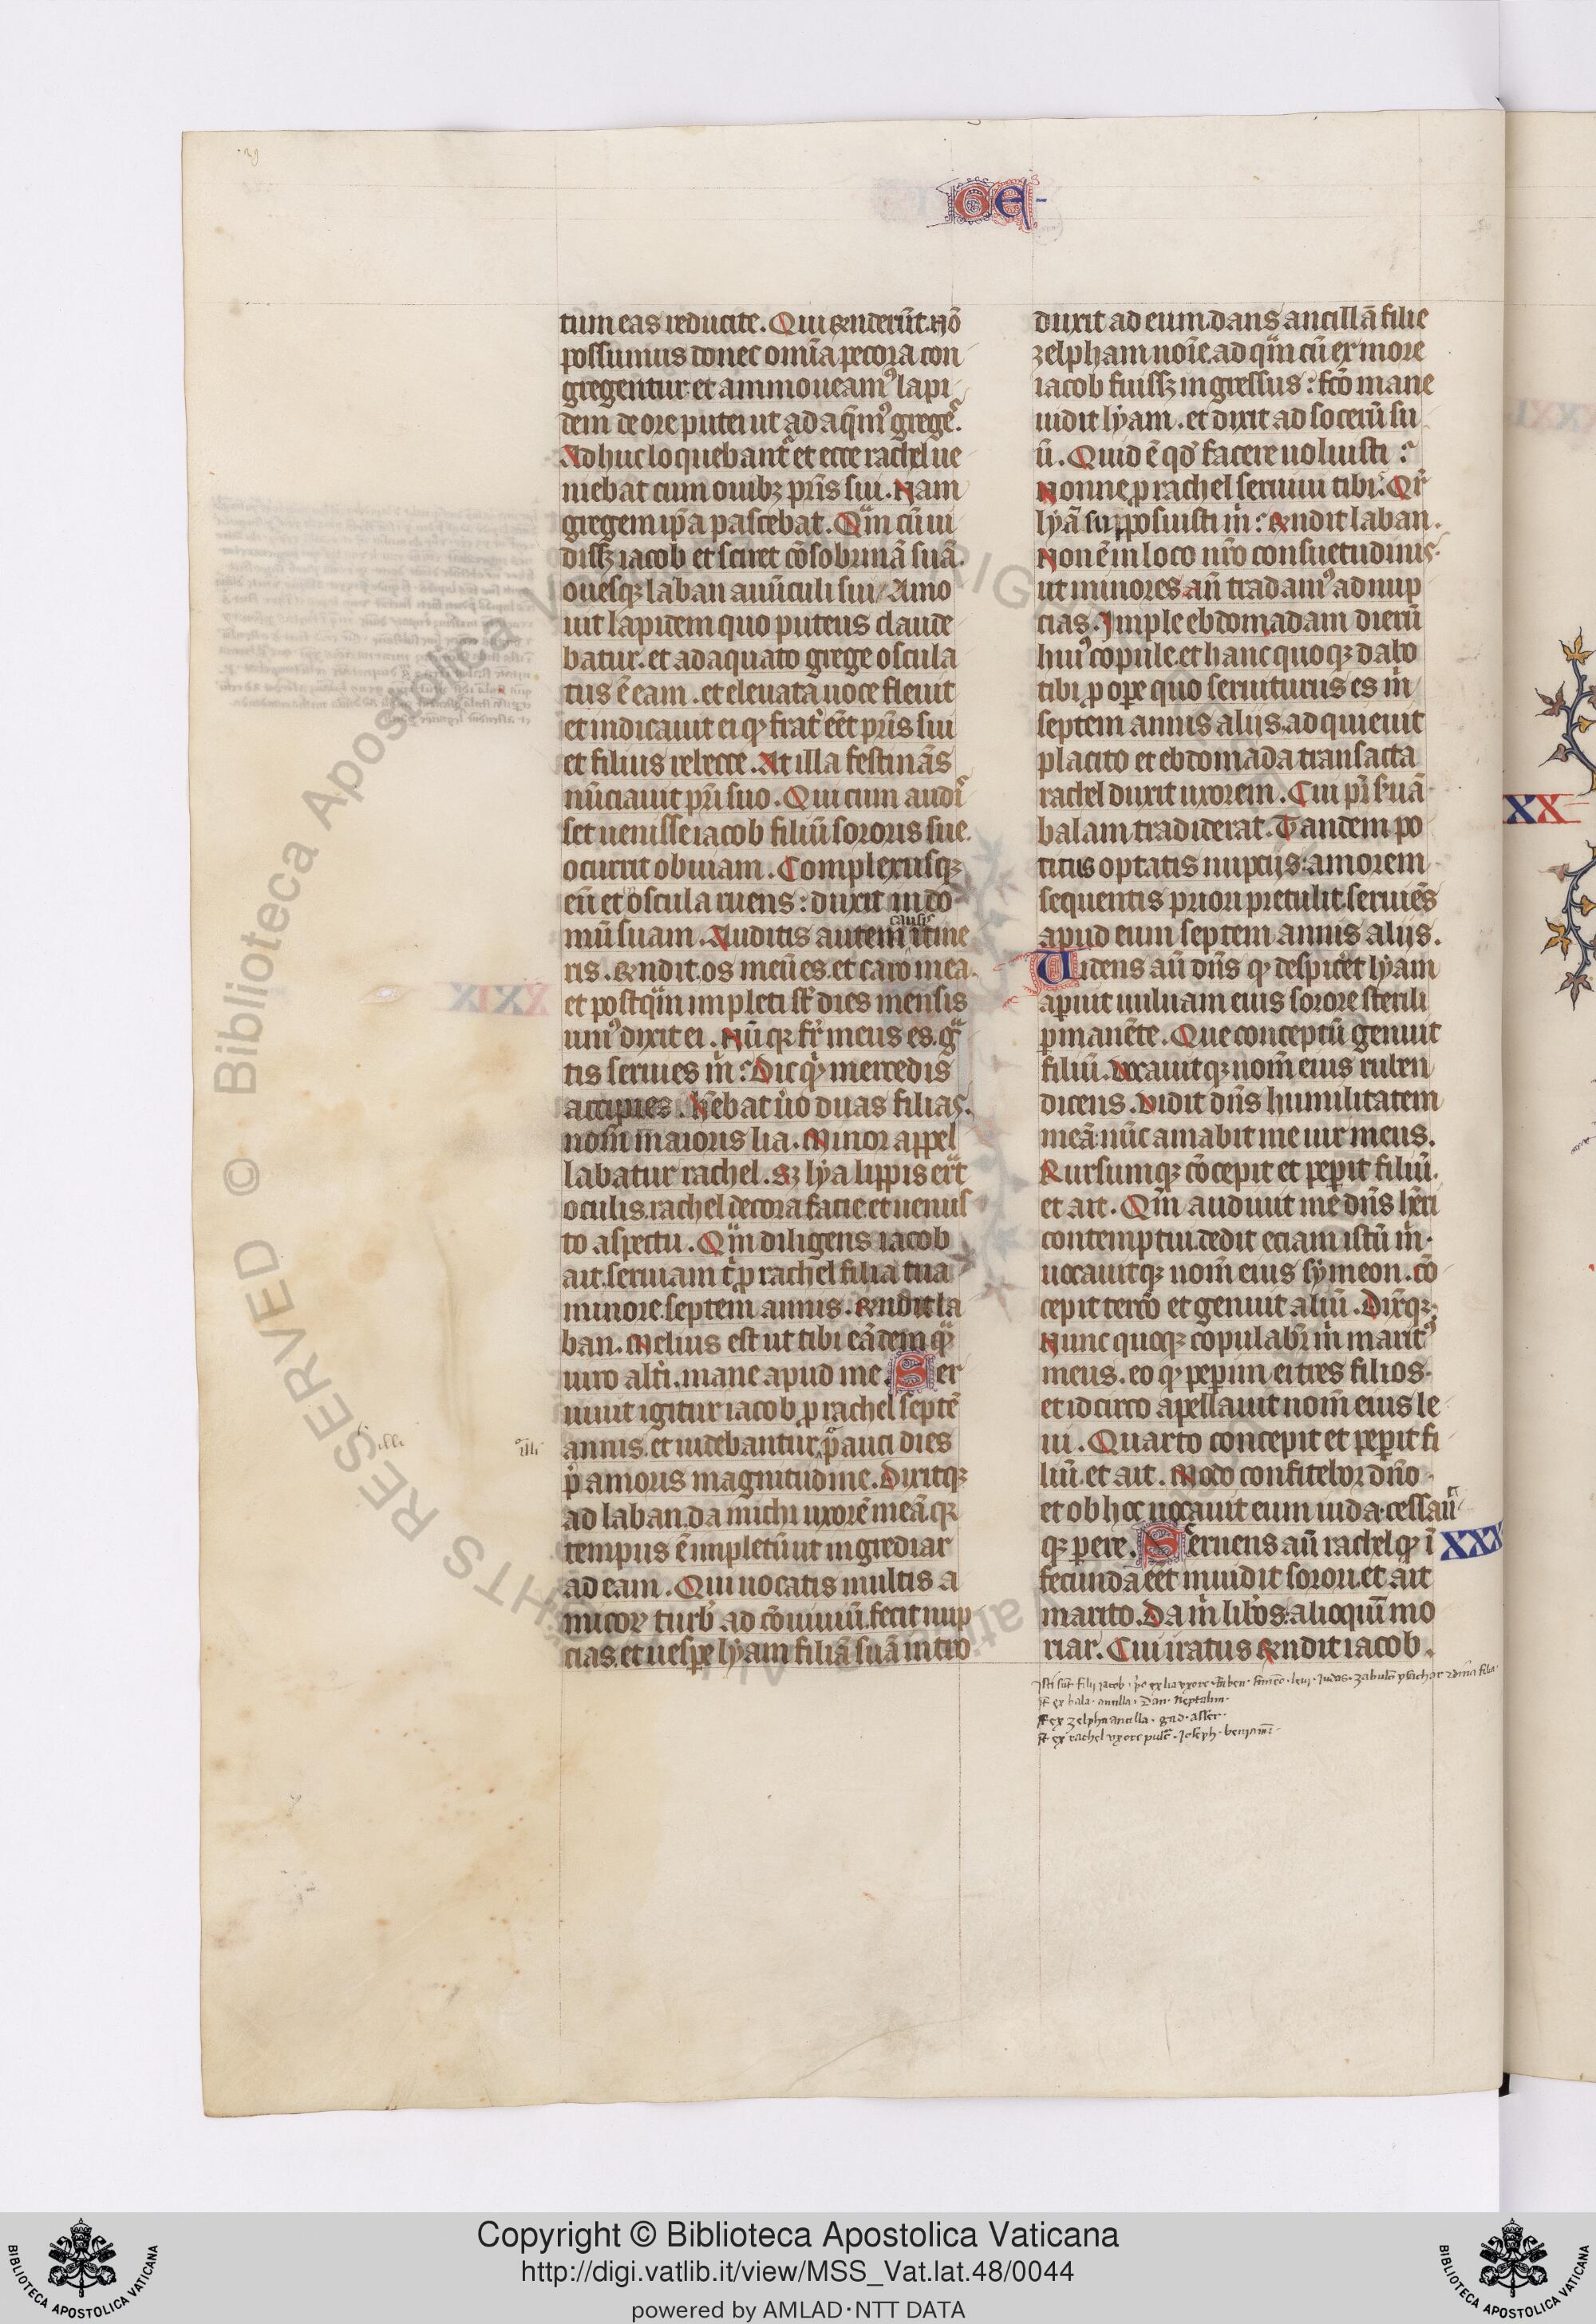 GE
tum eas reducite. Qui rñderũt. Nõ
possumus donec omĩa pecora con
gregentur et ammoueamꝰ lapi
dem de ore putei ut adaq̃mꝰ gregẽ.
Adhuc loquebantᷣ et ecce rachel ue
niebat cum ouibꝫ pr̃is sui. Nam
gregem ip̃a pascebat. Qᷓm cũ ui
dissꝫ iacob et sciret cõsobrinã suã.
ouesqꝫ laban auũculi sui / Amo
uit lapidem quo puteus claude
batur. et adaquato grege oscula
tus ẽ eam. et eleuata uoce fleuit
et indicauit ei ꝙ frat̾ eẽt pr̃is sui
et filius rebecce. At illa festinãs
nũciauit pr̃i suo. Qui cum audi
set uenisse iacob filiũ sororis sue.
ocurrit obuiam. Complexusqꝫ
eũ et oscula ruens: duxit in do
mũ suam. Auditis autem causis itine
ris. rñdit. os meũ es. et caro mea.
et postqᷓm impleti sũt dies mensis
uniꝰ dixit ei. Nũ qꝫ fr̃ meus es. gᷓ
tis seruies m̃: Dic qͥd mercedis
accipies. Hẽbat ũo duas filias.
nom̃ maioris lia. Minor appel
labatur rachel. Sꝫ lẏa lippis erat
oculis. rachel decora facie. et uenus
to aspectu. Qᷓm diligens iacob
ait. seruiam t̾ ꝓ rachel filia tua
minore. septem annis. rñdit la
ban. Melius est ut tibi eã dem qᷓ
uiro alt̾i. mane apud me. Ser
uiuit igitur iacob ꝓ rachel septẽ
annis. et uidebantur pauci dies
p̾ amoris magnitudine. Dixitqꝫ
ad laban. da michi uxorẽ meã. qꝫ
tempus ẽ impletũ ut ingrediar
ad eam. Qui uocatis multis a
micoꝝ turb̾ ad cõuiuiũ. fecit nup
cias. et uespe lẏam filiã suã intro
duxit ad eum. dans ancillã filie
zelpham noĩe. ad qᷓm cũ ex more
iacob fuissꝫ ingressus: fc̃o mane
uidit lẏam. et dixit ad socerũ su
ũ. Quid ẽ qd̾ facere uoluisti:
Nonne ꝓ rachel seruiui tibi. Qr̃
lẏã supposuisti m̃: rñdit laban.
Non ẽ in loco nr̃o consuetudinis.
ut minores añ tradamꝰ ad nup
cias. Imple ebdomadam dierũ
huiꝰ copule. et hanc quoqꝫ dabo
tibi ꝓ ope quo seruiturus es m̃
septem annis alijs. adquieuit
placito et ebdomada transacta
rachel duxit uxorem. Cui pr̃ s̾uã
balam tradiderat. Tandem po
titus optatis nuptijs: amorem
sequentis priori pretulit. seruiẽs
apud eum septem annis alijs.
Uidens aũ dñs ꝙ despicẽt lẏam
aperuit uuluam eius sorore sterili
ꝑmanẽte. Que conceptũ genuit
filiũ. Uocauitqꝫ nom̃ eius ruben
dicens. Uidit dñs humilitatem
meã. nũc amabit me uir meus.
Rursumqꝫ cõcepit et peperit filiũ.
et ait. Qm̃ audiuit me dñs hẽri
contemptui. dedit eciam istũ m̃.
uocauitqꝫ nom̃ eius sẏmeon. cõ
cepit tercio et genuit aliũ. Dix̃qꝫ.
Nunc quoqꝫ copulabr̃ m̃ maritꝰ
meus. eo ꝙ pepim ei tres filios.
et idcirco apellauit nom̃ eius le
ui. Quarto concepit et peperit fi
liũ. et ait. Modo confitebor dño.
et ob hoc uocauit eum iuda. cessauit
qꝫ pere. Cernens aũ rachel ꝙ ĩ XXX
fecunda eẽt inuidit sorori. et ait
marito. Da m̃ lib̾os. alioquĩ mo
riar. Cui iratus rñdit iacob.
Isti sũt filij iacob. p̾o ex lia vxore. Ruben. simeõ. leui. Iudas. zabulõ ysachar
Jt̃ ex bala. ancilla. Dan. Neptalim.
Jt̃ ex zelpha ancilla. gad. asser.
Jt̃ ex rachel vxore. Joseph. beniamĩ.
XX
Copyright © Biblioteca Apostolica Vaticana
http://digi.vatlib.it/view/MSS_Vat.lat.48/0044
powered by AMLAD·NTT DATA
BIBLIOTECA APOSTOLICA VATICANA
BIBLIOTECA APOSTOLICA VATICANA